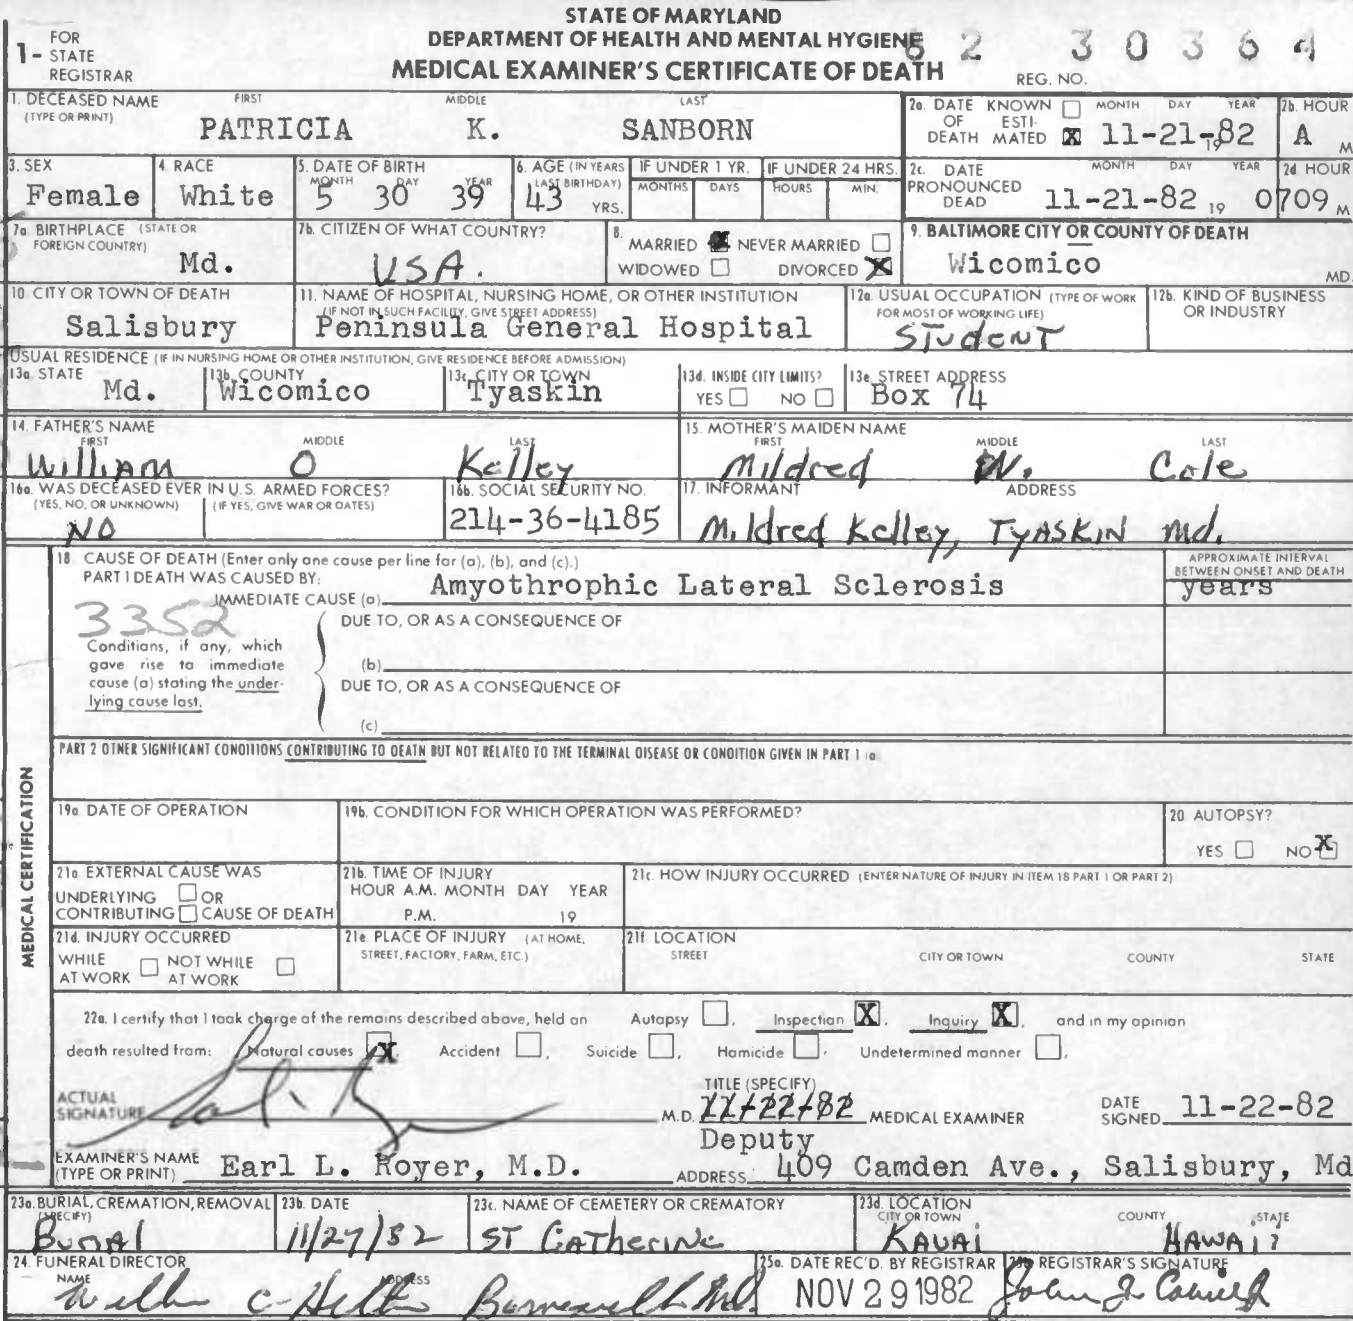 STATE OF MARYLAND
DEPARTMENT OF HEALTH AND MENTAL HYGIENE
MEDICAL EXAMINER'S CERTIFICATE OF DEATH
1- FOR STATE REGISTRAR
REG. NO. 82 30364
1. DECEASED NAME (TYPE OR PRINT) FIRST MIDDLE LAST
PATRICIA K. SANBORN
2a. DATE OF DEATH KNOWN ESTIMATED X MONTH DAY YEAR 11-21-82 19
2b. HOUR A M
3. SEX Female
4. RACE White
5. DATE OF BIRTH MONTH DAY YEAR 5 30 39
6. AGE (IN YEARS LAST BIRTHDAY) 43 YRS.
IF UNDER 1 YR. MONTHS DAYS
IF UNDER 24 HRS. HOURS MIN.
2c. DATE PRONOUNCED DEAD MONTH DAY YEAR 11-21-82 19
2d HOUR 0709 M
7a. BIRTHPLACE (STATE OR FOREIGN COUNTRY) Md.
7b. CITIZEN OF WHAT COUNTRY? USA.
8. MARRIED NEVER MARRIED WIDOWED DIVORCED X
9. BALTIMORE CITY OR COUNTY OF DEATH Wicomico MD.
10. CITY OR TOWN OF DEATH Salisbury
11. NAME OF HOSPITAL, NURSING HOME, OR OTHER INSTITUTION (IF NOT IN SUCH FACILITY, GIVE STREET ADDRESS) Peninsula General Hospital
12a. USUAL OCCUPATION (TYPE OF WORK FOR MOST OF WORKING LIFE) STUDENT
12b. KIND OF BUSINESS OR INDUSTRY
USUAL RESIDENCE (IF IN NURSING HOME OR OTHER INSTITUTION, GIVE RESIDENCE BEFORE ADMISSION)
13a. STATE Md.
13b. COUNTY Wicomico
13c. CITY OR TOWN Tyaskin
13d. INSIDE CITY LIMITS? YES NO
13e. STREET ADDRESS Box 74
14. FATHER'S NAME FIRST MIDDLE LAST
William O Kelley
15. MOTHER'S MAIDEN NAME FIRST MIDDLE LAST
Mildred W. Cole
16a. WAS DECEASED EVER IN U.S. ARMED FORCES? (YES, NO, OR UNKNOWN) (IF YES, GIVE WAR OR DATES) NO
16b. SOCIAL SECURITY NO. 214-36-4185
17. INFORMANT ADDRESS
Mildred Kelley, TYASKIN Md.
18. CAUSE OF DEATH (Enter only one cause per line for (a), (b), and (c).)
PART I DEATH WAS CAUSED BY:
IMMEDIATE CAUSE (a) Amyothrophic Lateral Sclerosis
APPROXIMATE INTERVAL BETWEEN ONSET AND DEATH years
3352
Conditions, if any, which gave rise to immediate cause (a) stating the underlying cause last.
DUE TO, OR AS A CONSEQUENCE OF
(b)
DUE TO, OR AS A CONSEQUENCE OF
(c)
PART 2 OTHER SIGNIFICANT CONDITIONS CONTRIBUTING TO DEATH BUT NOT RELATED TO THE TERMINAL DISEASE OR CONDITION GIVEN IN PART 1 (a)
MEDICAL CERTIFICATION
19a. DATE OF OPERATION
19b. CONDITION FOR WHICH OPERATION WAS PERFORMED?
20. AUTOPSY? YES NO X
21a. EXTERNAL CAUSE WAS UNDERLYING OR CONTRIBUTING CAUSE OF DEATH
21b. TIME OF INJURY HOUR A.M. MONTH DAY YEAR P.M. 19
21c. HOW INJURY OCCURRED (ENTER NATURE OF INJURY IN ITEM 18 PART 1 OR PART 2)
21d. INJURY OCCURRED WHILE AT WORK NOT WHILE AT WORK
21e PLACE OF INJURY (AT HOME, STREET, FACTORY, FARM, ETC.)
21f. LOCATION STREET CITY OR TOWN COUNTY STATE
22a. I certify that I took charge of the remains described above, held an Autopsy, Inspection X, Inquiry X, and in my opinion
death resulted from: Natural causes X, Accident, Suicide, Homicide, Undetermined manner,
ACTUAL SIGNATURE M.D.
TITLE (SPECIFY) 11-22-82 Deputy MEDICAL EXAMINER
DATE SIGNED 11-22-82
EXAMINER'S NAME (TYPE OR PRINT) Earl L. Royer, M.D.
ADDRESS 409 Camden Ave., Salisbury, Md
23a. BURIAL, CREMATION, REMOVAL (SPECIFY) Burial
23b. DATE 11/27/82
23c. NAME OF CEMETERY OR CREMATORY ST Catherine
23d. LOCATION CITY OR TOWN COUNTY STATE
KAUAI HAWAII
24. FUNERAL DIRECTOR NAME ADDRESS
25a. DATE REC'D. BY REGISTRAR NOV 29 1982
25b REGISTRAR'S SIGNATURE